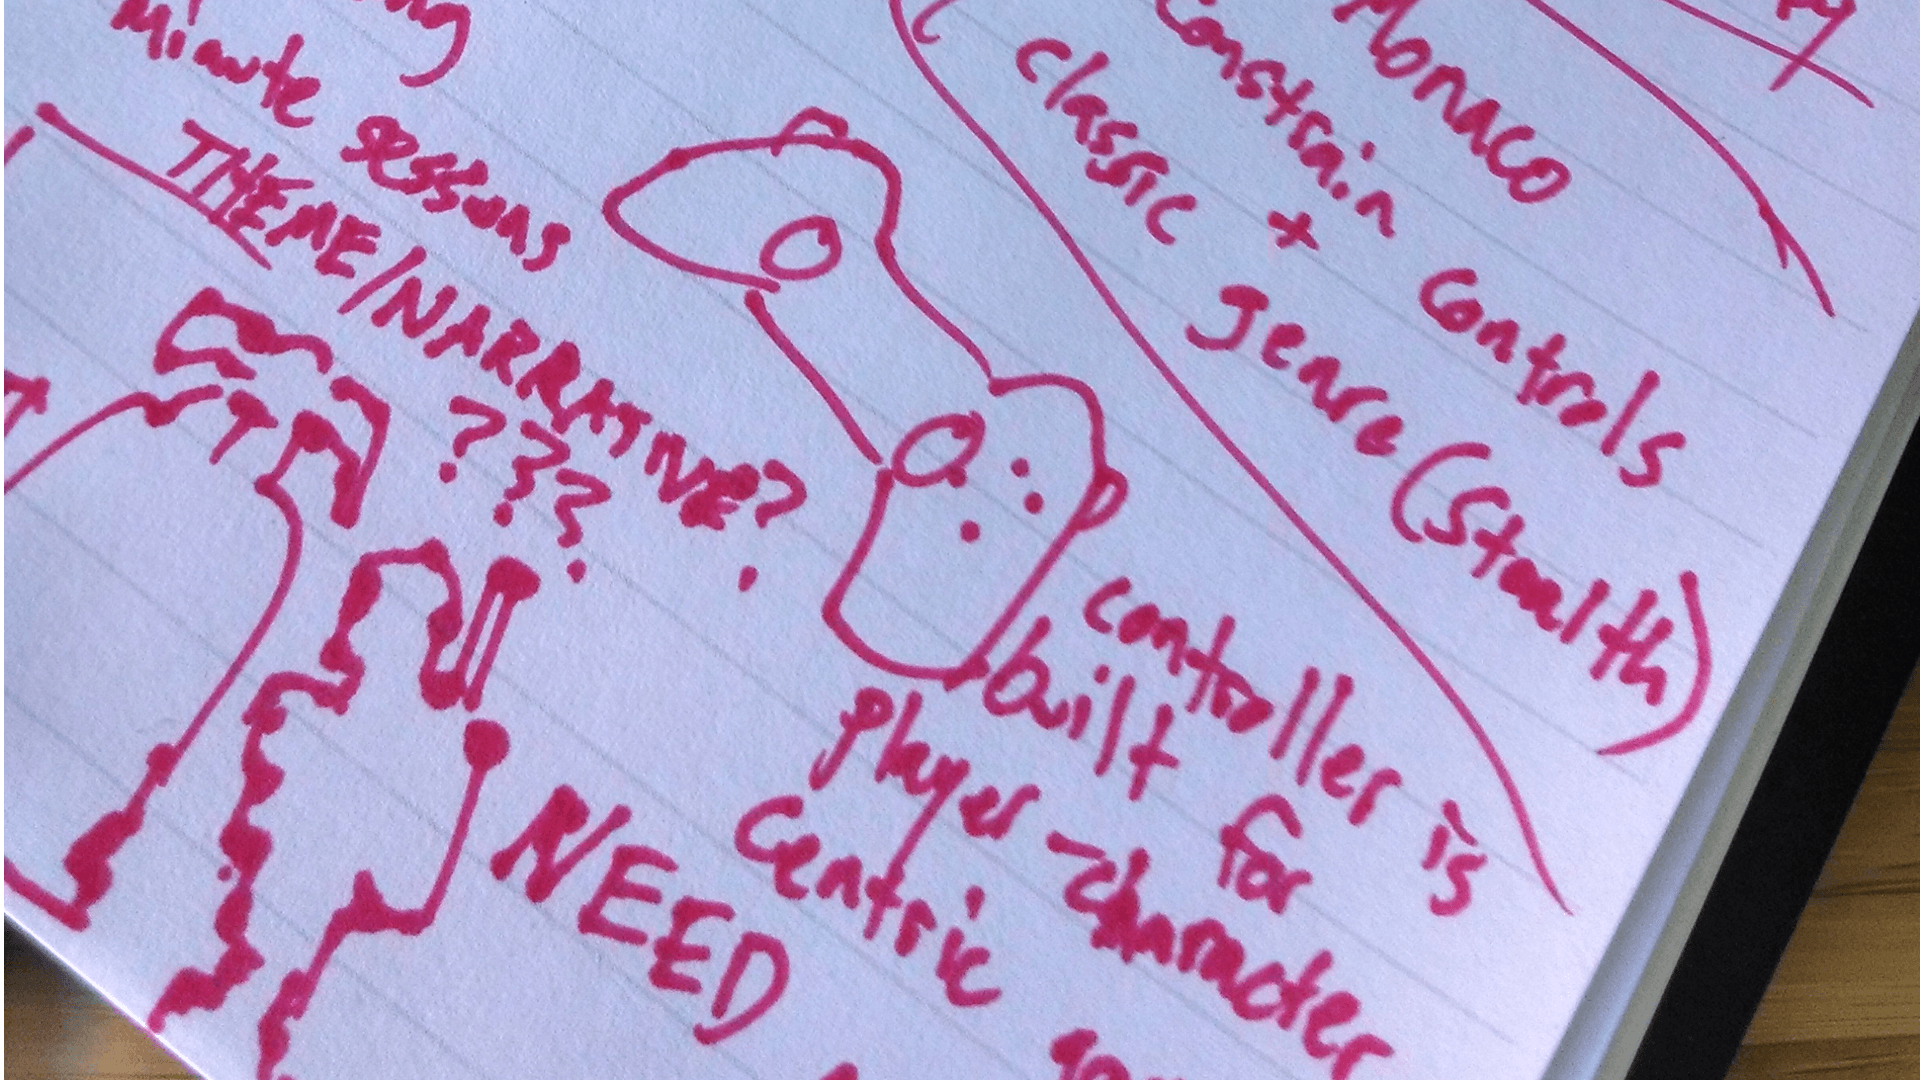 Minute sessions
THEME/NARRATIVE?
???
NEED
Monaco
Constrain controls
+
classic genre (Stealth)
controller is
built for
player-character
centric